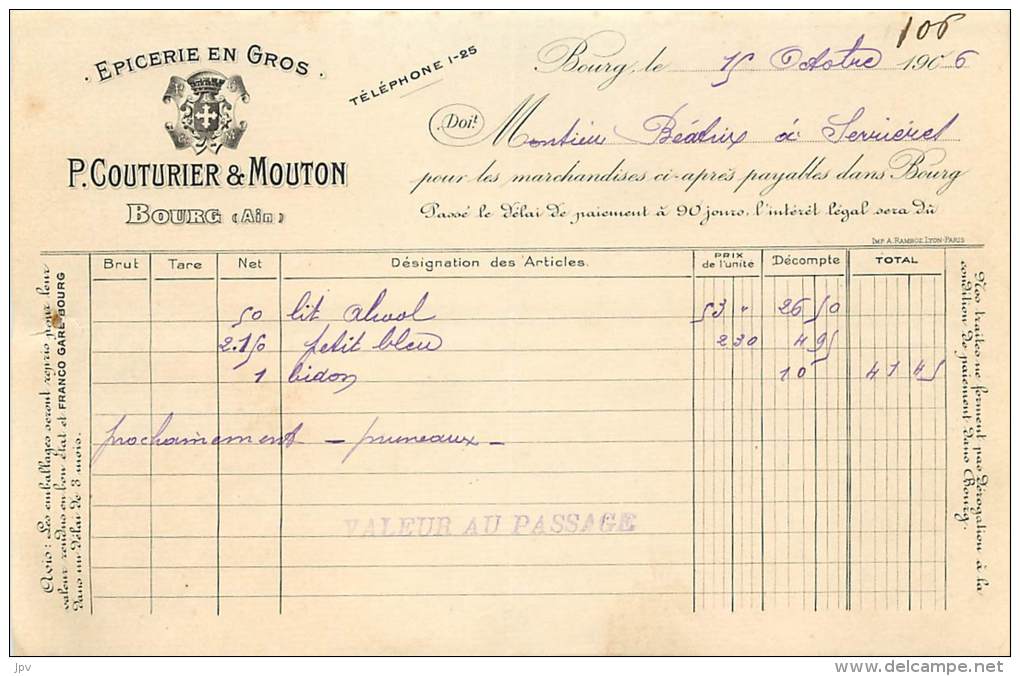 106
EPICERIE EN GROS
P. COUTURIER & MOUTON
BOURG (Ain)
TÉLÉPHONE 1-25
Bourg, le 15 Octobre 1906
Doit Monsieur Béatrix à Serrières
pour les marchandises ci-après payables dans Bourg
Passé le délai de paiement à 90 jours, l'intérêt légal sera dû
IMP. A. RAMBOZ, LYON-PARIS
Brut Tare Net Désignation des Articles. PRIX de l'unité Décompte TOTAL
50 lit alcool 53 " 26 50
2.150 petit bleu 230 4 95
1 bidon 10 41 45
prochainement - pruneaux -
VALEUR AU PASSAGE
Avis: Les emballages seront repris pour leur
valeur rendus en bon état et FRANCO GARE BOURG
dans un délai de 3 mois.
Nos traites ne forment pas dérogation à la
condition de paiement dans Bourg.
jpv
delcampe.net